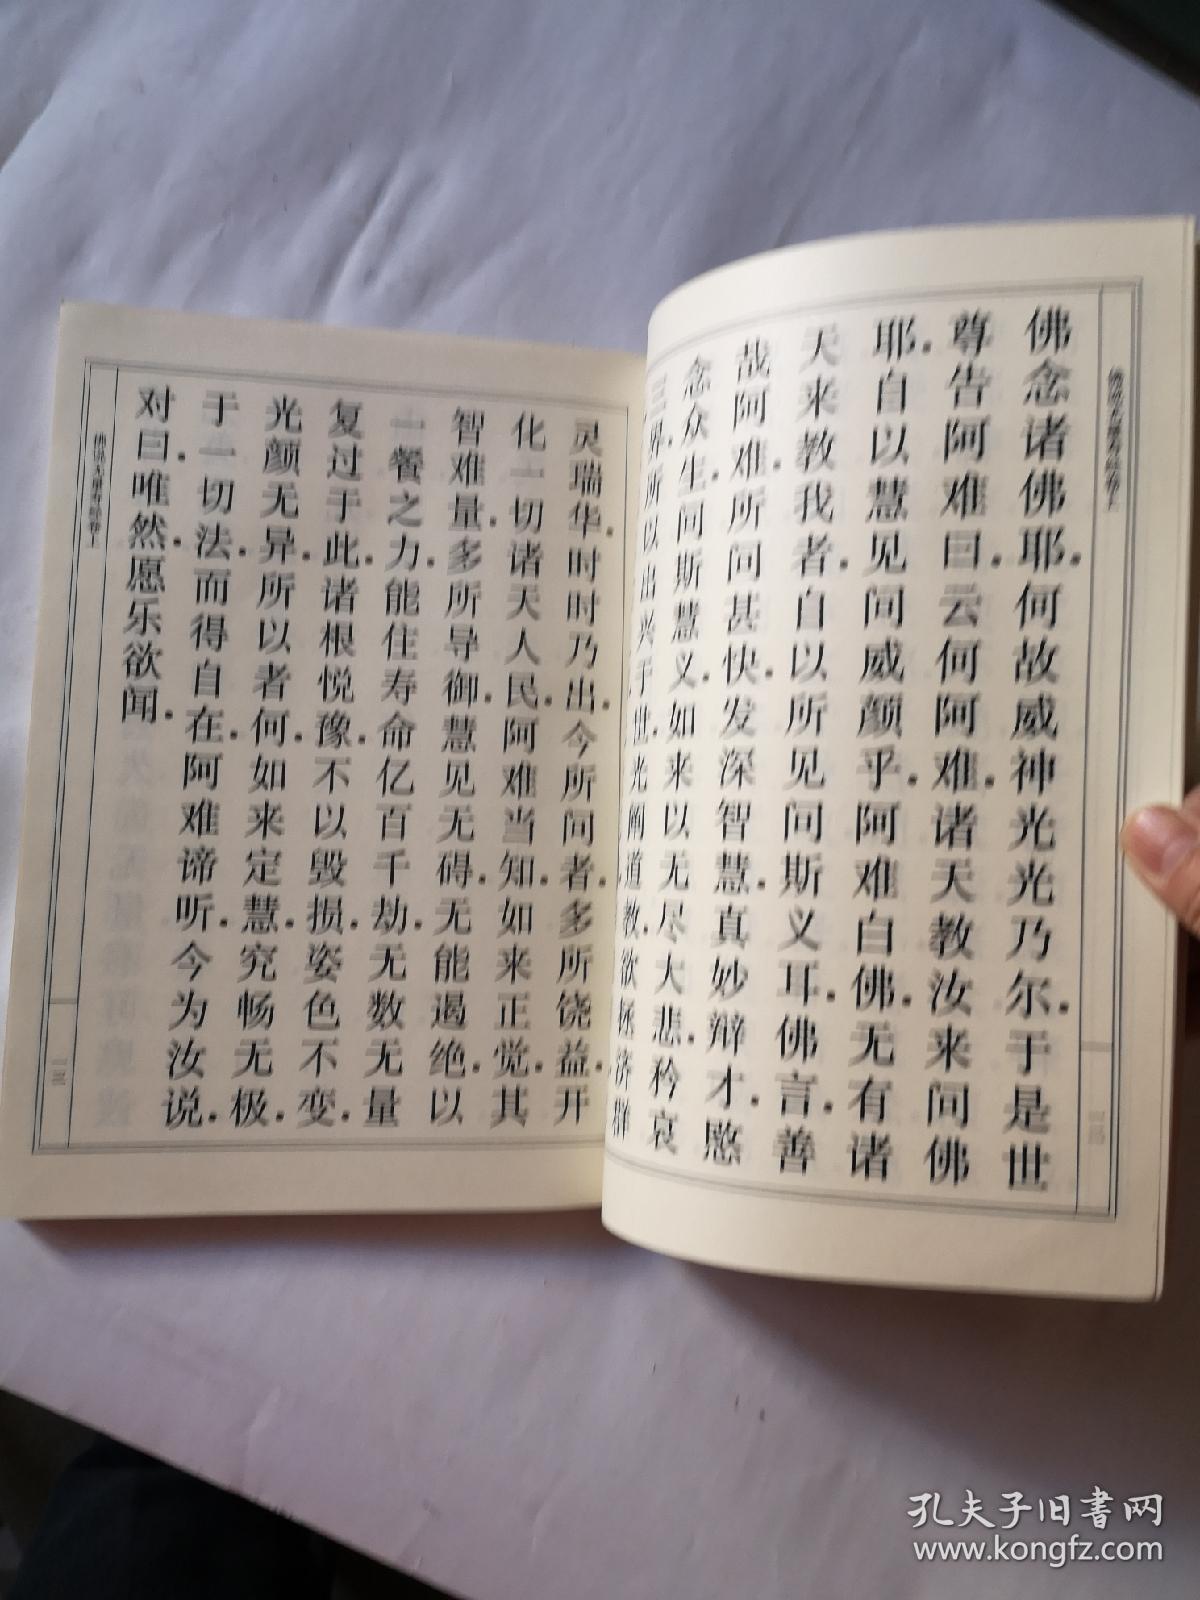 佛说无量寿经卷上
佛念诸佛耶。何故威神光光乃尔。于是世
尊告阿难曰。云何阿难。诸天教汝来问佛
耶。自以慧见问威颜乎。阿难白佛。无有诸
天来教我者。自以所见问斯义耳。佛言。善
哉阿难。所问甚快。发深智慧。真妙辩才。愍
念众生。问斯慧义。如来以无尽大悲。矜哀
三界。所以出兴于世。光阐道教。欲拯济群
灵瑞华。时时乃出。今所问者。多所饶益。开
化一切诸天人民。阿难当知。如来正觉。其
智难量。多所导御。慧见无碍。无能遏绝。以
一餐之力。能住寿命亿百千劫。无数无量。
复过于此。诸根悦豫。不以毁损。姿色不变。
光颜无异。所以者何。如来定慧。究畅无极。
于一切法。而得自在。阿难谛听。今为汝说。
对曰。唯然。愿乐欲闻。
佛说无量寿经卷上
孔夫子旧书网
www.kongfz.com